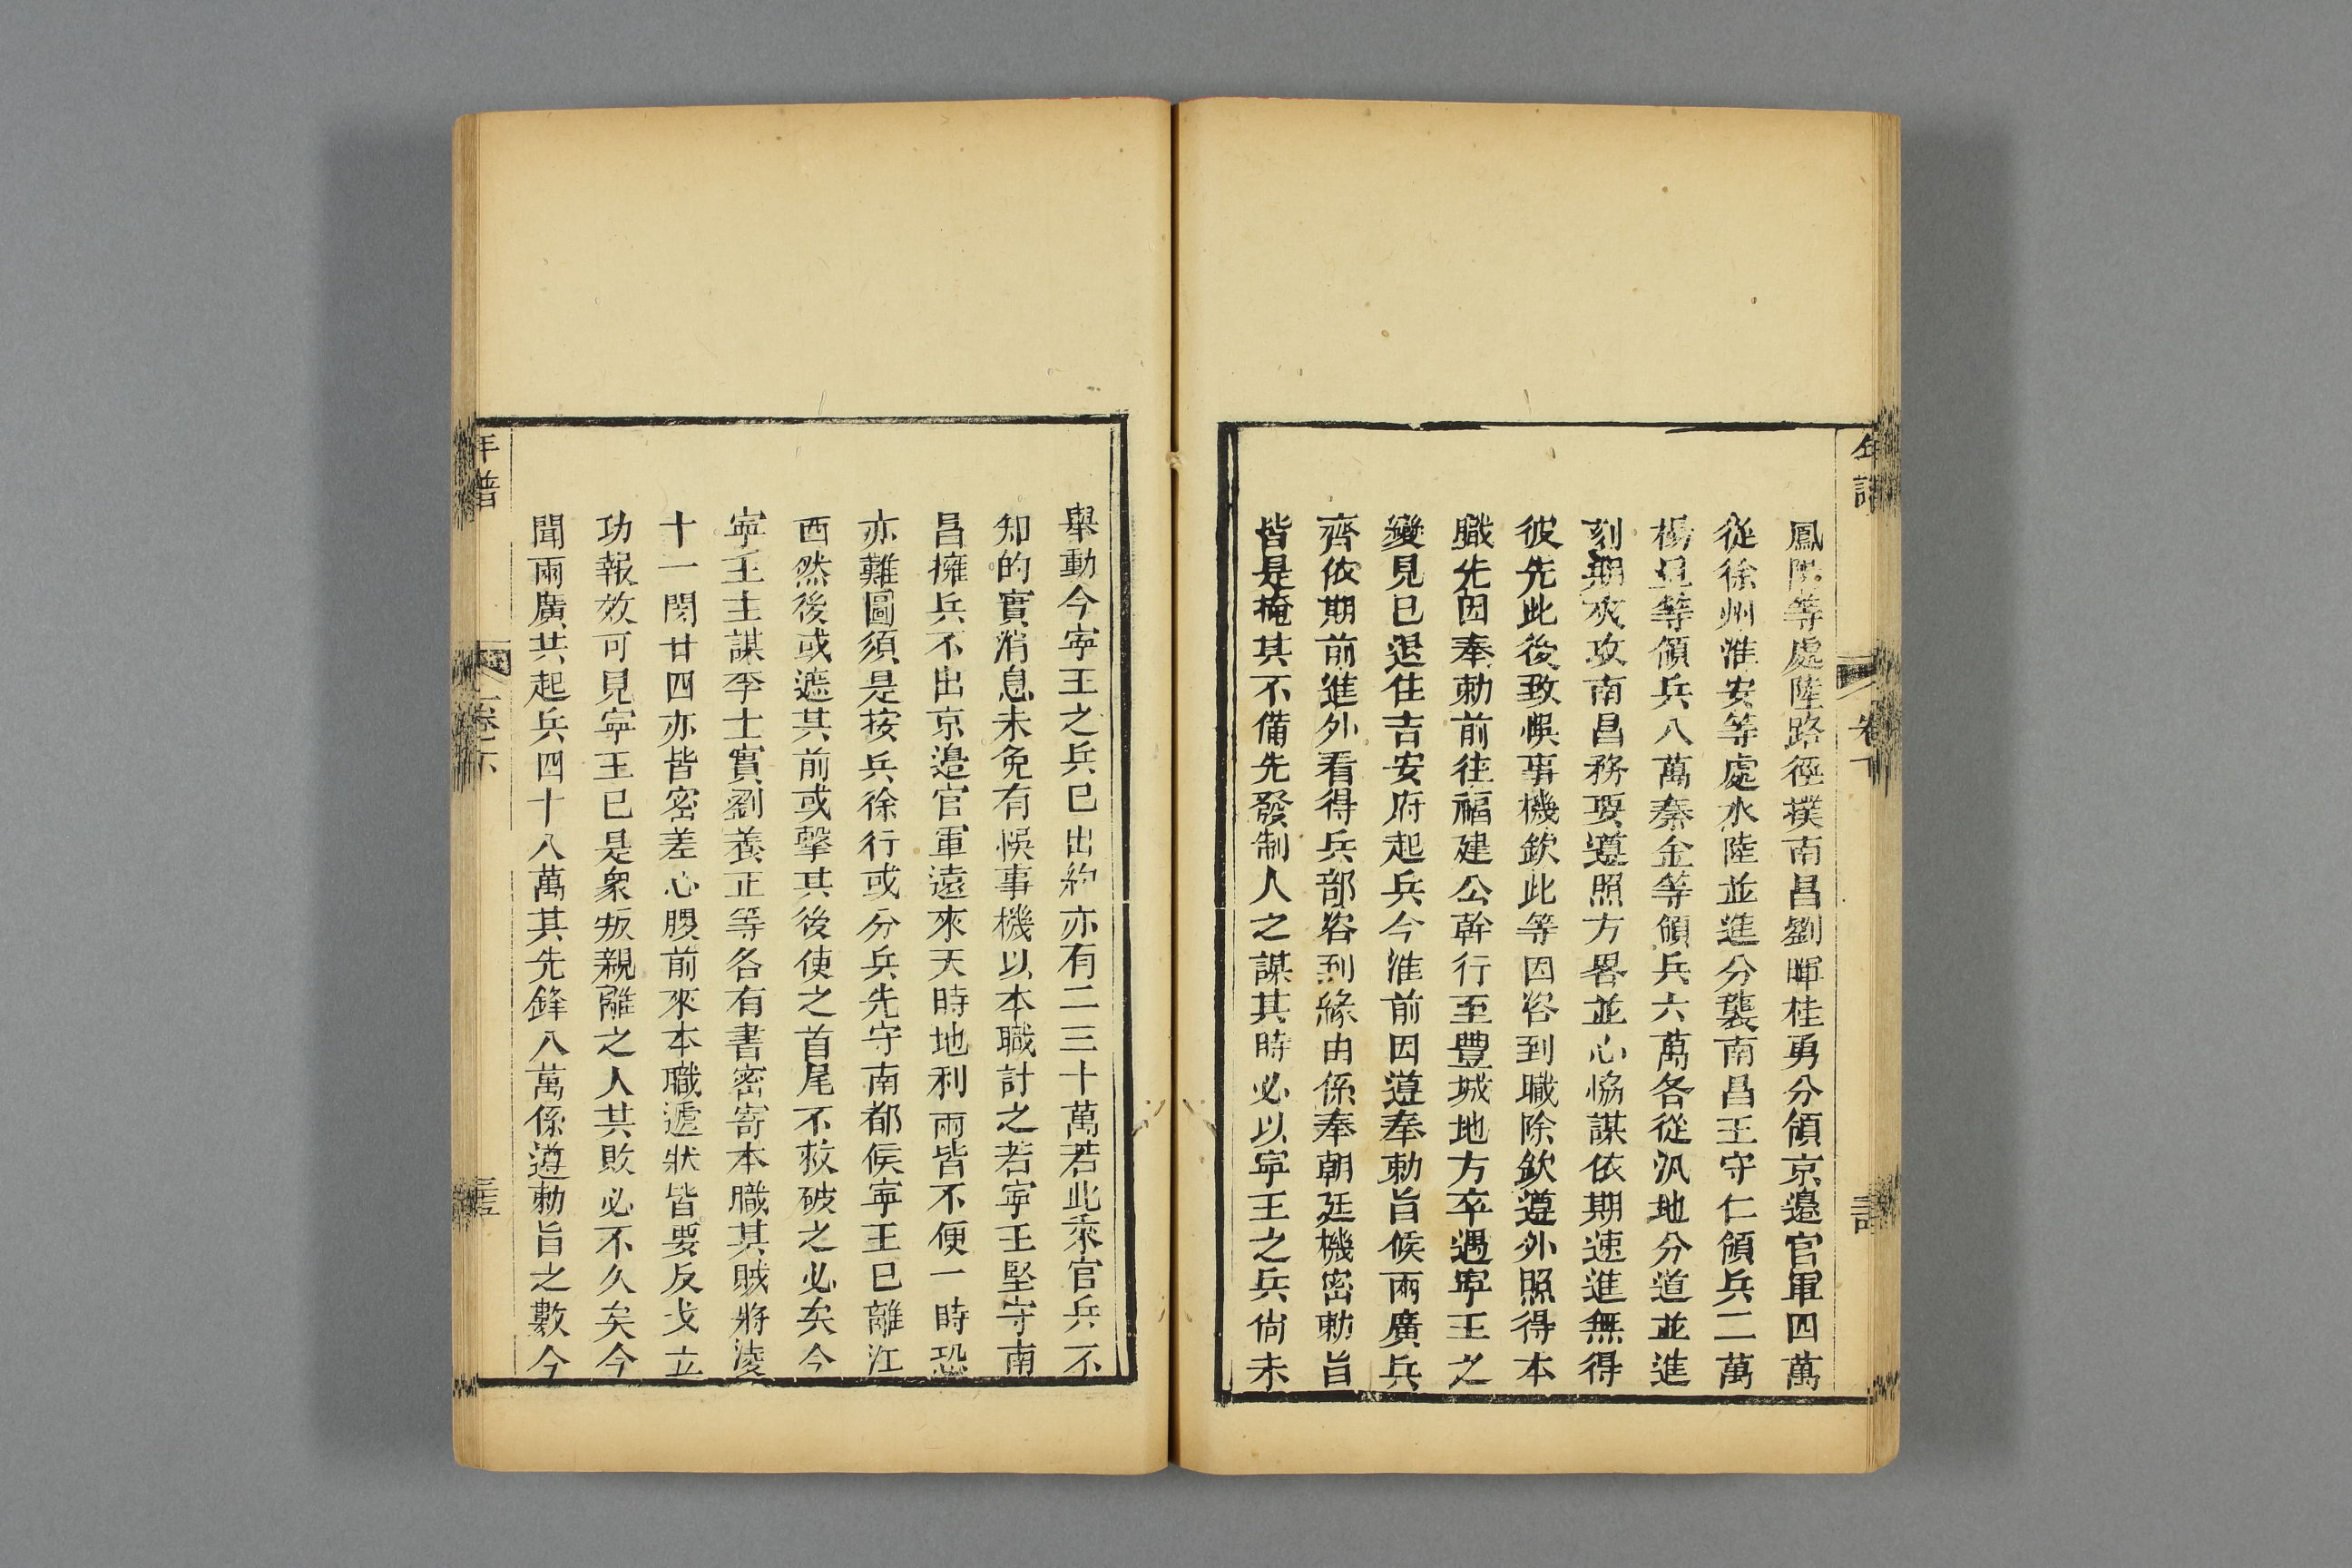 鳳陽等處陸路徑撲南昌劉暉桂勇分領京邉官軍四萬
從徐州淮安等處水陸並進分襲南昌王守仁領兵二萬
楊旦等領兵八萬秦金等領兵六萬各從汛地分道並進
刻期夾攻南昌務要遵照方畧並心恊謀依期速進無得
彼先此後致悞事機欽此等因咨到職除欽遵外照得本
職先因奉勅前往福建公幹行至豐城地方卒遇寧王之
變見已退住吉安府起兵今准前因遵奉勅旨候兩廣兵
齊依期前進外看得兵部咨到緣由係奉朝廷機密勅旨
皆是掩其不備先發制人之謀其時必以寧王之兵尙未
舉動今寧王之兵已出約亦有二三十萬若此來官兵不
知的實消息未免有悞事機以本職計之若寧王堅守南
昌擁兵不出京邉官軍遠來天時地利兩皆不便一時恐
亦難圖須是按兵徐行或分兵先守南都候寧王已離江
西然後或遮其前或擊其後使之首尾不救破之必矣今
寧王主謀李士實劉養正等各有書密寄本職其賊將淩
十一閔廿四亦皆密差心腹前來本職遞狀皆要反戈立
功報效可見寧王已是衆叛親離之人其敗必不久矣今
聞兩廣共起兵四十八萬其先鋒八萬係遵勅旨之數今
年譜
卷下